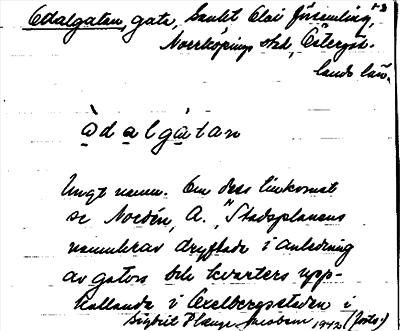 Odalgatan, gata, Sankt Olai församling,
Norrköpings stad, Östergöt-
lands län.
òdalgàtan
Ungt namn. Om dess tillkomst
se Nordén, A., "Stadsplanens
namnkrav dryftade i anledning
av gators och kvarters upp-
kallande i Oxelbergsstaden i
1942 (forts.)